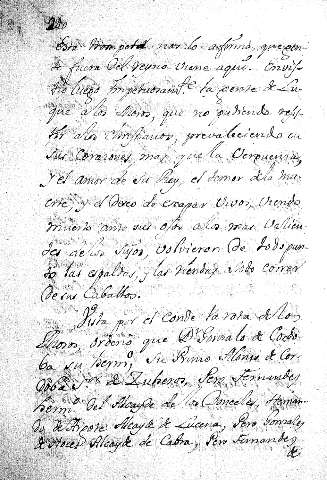 este trompeta nardo afirmó, que gen
te fuera del reyno viene aqui. Envis
tió luego impetuosamte. la gente de Lu
que a los Moros, que no pudiendo resis
tir a los christianos, prevaleciendo en
sus corazones mas que la Verguenza,
y el amor de su Rey, el temor de la mu
erte y el deseo de escapar vivos, viendo
muerto ante sus ojos a los mas valien
tes de los suyos, volvieron de todo pun
to las espaldas, y las riendas a todo correr
de sus Caballos.
Vista por el conde la rota de los
Moros, ordenó que Dn. Gonzalo de Cordo
ba su hermo. su Primo Alonso de Cor
dova, de Zuheros, Pero Fernandez
hermo. del Alcayde de los Donceles, Hernan
do de Argote Alcayde de Lucena, Pero Gonzalez
de Hoces Alcayde de Cabra, Pero Fernandez
de